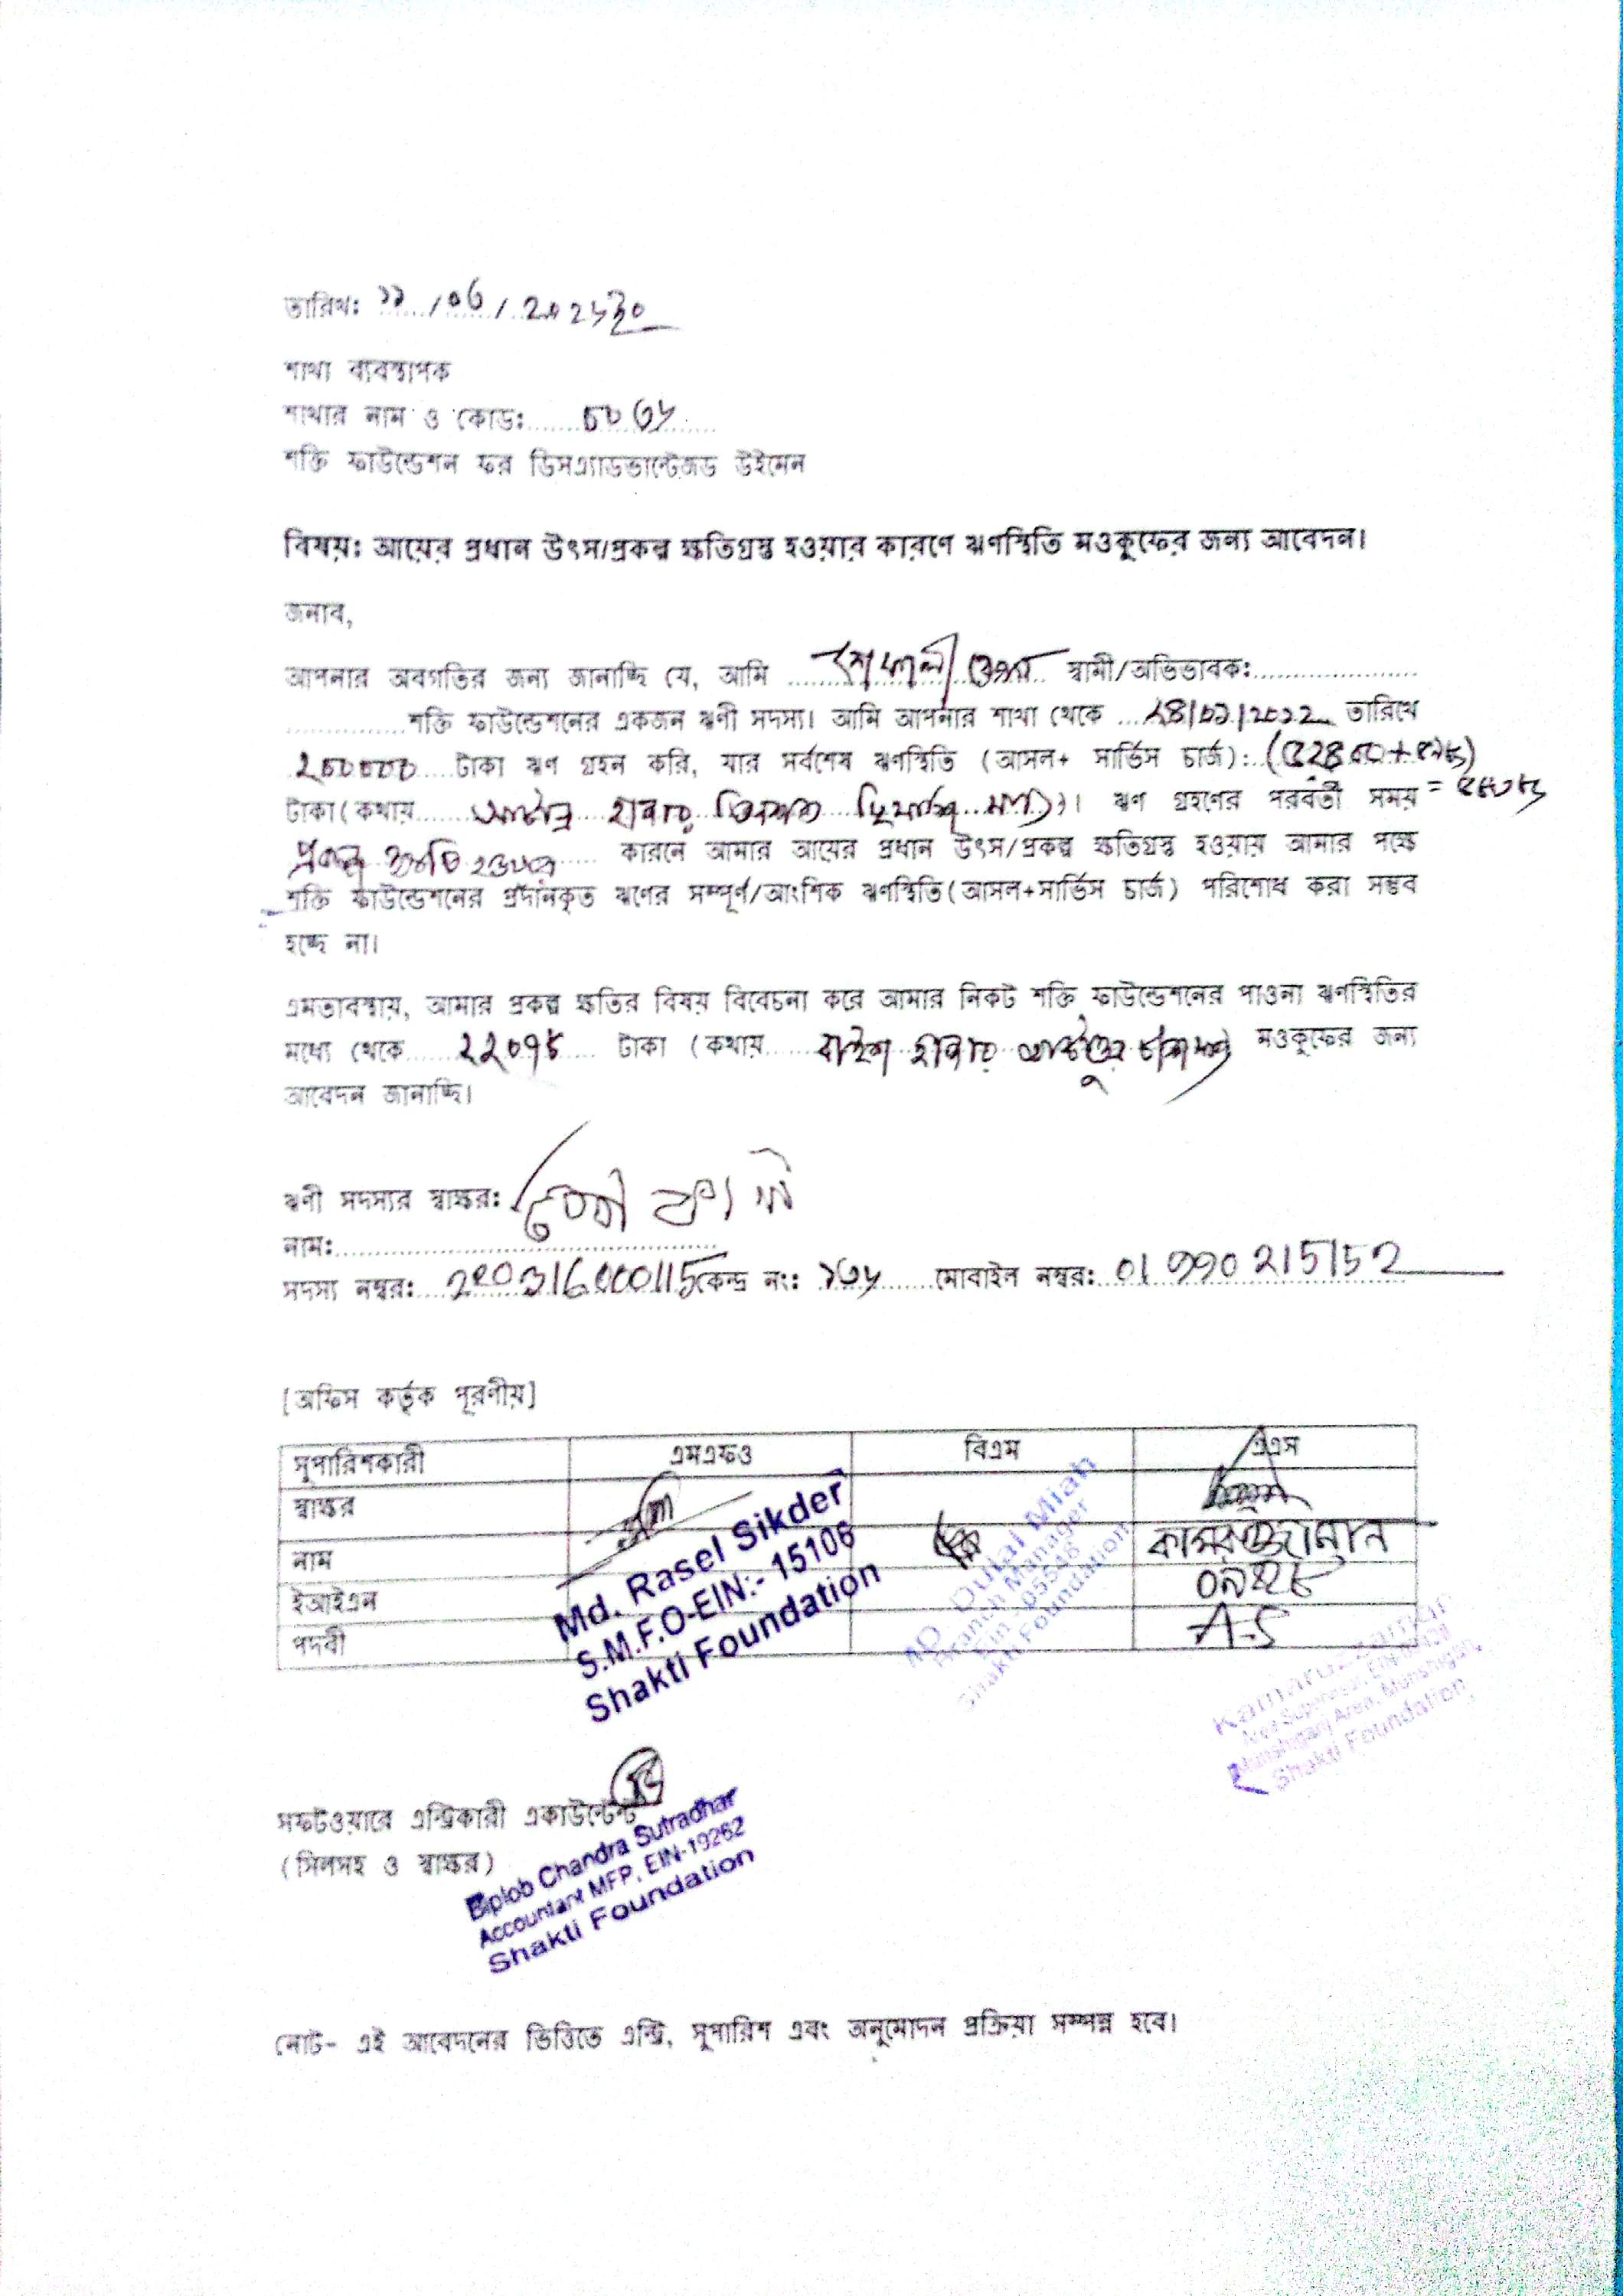 তারিখঃ ১১/০৬/২০২
শাখা ব্যবস্থাপক
শাখার নাম ও কোডঃ
শক্তি ফাউন্ডেশন ফর ডিসএ্যাডভান্টেজড উইমেন
বিষয়ঃ আয়ের প্রধান উৎস/প্রকল্প ক্ষতিগ্রস্ত হওয়ার কারণে ঋণস্থিতি মওকুফের জন্য আবেদন।
জনাব,
আপনার অবগতির জন্য জানাচ্ছি যে, আমি স্বামী/অভিভাবকঃ
শক্তি ফাউন্ডেশনের একজন ঋণী সদস্য। আমি আপনার শাখা থেকে তারিখে
টাকা ঋণ গ্রহন করি, যার সর্বশেষ ঋণস্থিতি (আসল+ সার্ভিস চার্জ):
টাকা(কথায় হাজার মাত্র)। ঋণ গ্রহণের পরবর্তী সময়
প্রকল্প কারনে আমার আয়ের প্রধান উৎস/প্রকল্প ক্ষতিগ্রস্ত হওয়ায় আমার পক্ষে
শক্তি ফাউন্ডেশনের প্রদানকৃত ঋণের সম্পূর্ণ/আংশিক ঋণস্থিতি(আসল+সার্ভিস চার্জ) পরিশোধ করা সম্ভব
হচ্ছে না।
এমতাবস্থায়, আমার প্রকল্প ক্ষতির বিষয় বিবেচনা করে আমার নিকট শক্তি ফাউন্ডেশনের পাওনা ঋণস্থিতির
মধ্যে থেকে ২২০৭৮ টাকা (কথায় বাইশ হাজার আটাত্তর টাকা মাত্র) মওকুফের জন্য
আবেদন জানাচ্ছি।
ঋণী সদস্যর স্বাক্ষরঃ
নামঃ
সদস্য নম্বরঃ কেন্দ্র নং: মোবাইল নম্বরঃ
[অফিস কর্তৃক পূরণীয়]
সুপারিশকারী এমএফও বিএম এএস
স্বাক্ষর
নাম কামরুজ্জামান
ইআইএন
পদবী A.S
Md. Rasel Sikder
S.M.F.O-EIN:- 15106
Shakti Foundation
MD Dulal Miah
Branch Manager
Ein - 05546
Shakti Foundation
Kamaruzzaman
Munshiganj Area, Munshiganj,
Shakti Foundation,
সফটওয়ারে এন্ট্রিকারী একাউন্টেন্ট
(সিলসহ ও স্বাক্ষর)
Biplob Chandra Sutradhar
Accountant MFP, EIN-19262
Shakti Foundation
নোট- এই আবেদনের ভিত্তিতে এন্ট্রি, সুপারিশ এবং অনুমোদন প্রক্রিয়া সম্পন্ন হবে।